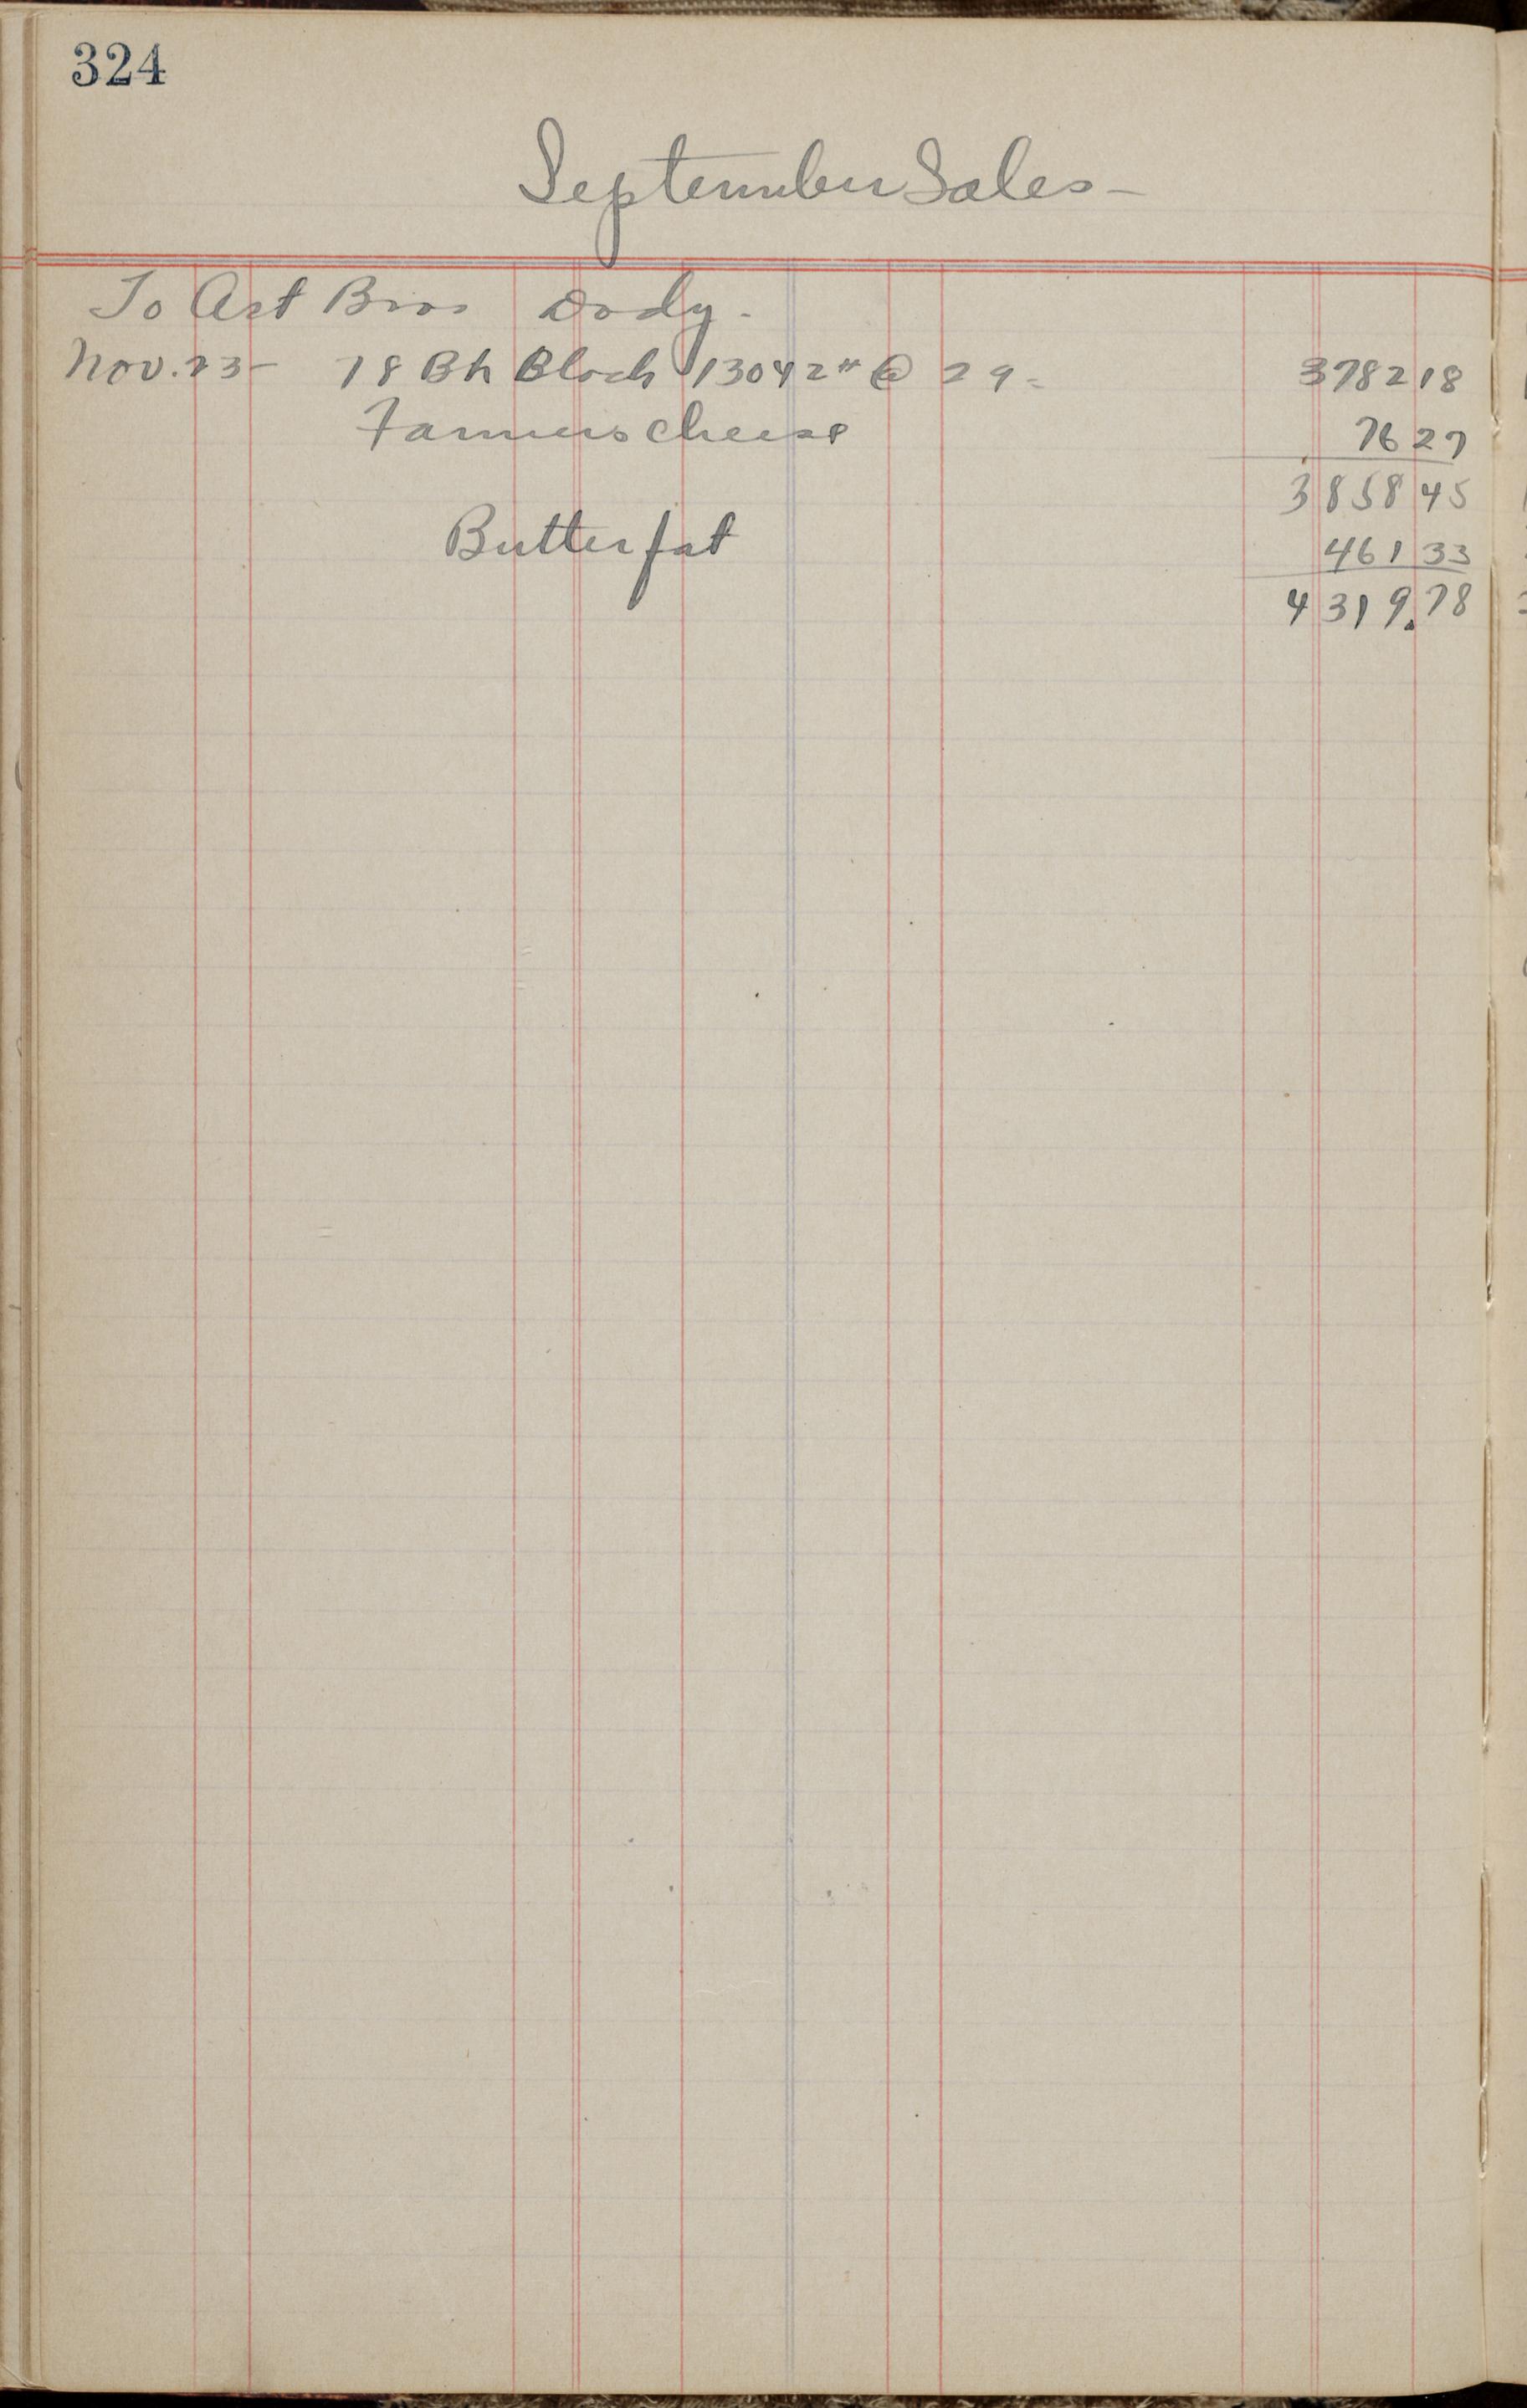 324
September Sales-
To Art Bros Dody.
Nov. 23- 78 Bh Block 13042# @ 29- 3782 18
Farmers cheese 76 27
3858 45
Butterfat 461 33
4319.78